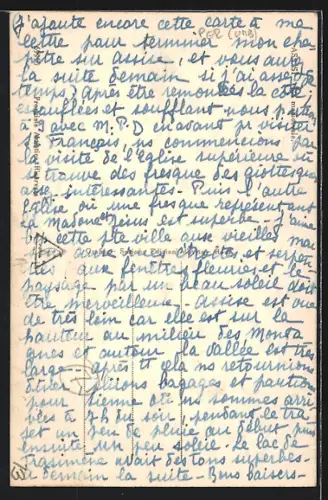 j'ajoute encore cette carte à ma
lettre pour terminer mon cha-
pitre sur Assise, et vous aurez
la suite demain si j'ai assez de
temps? Après être remontées la côte
essouflées et soufflant nous
avec M. P. D en avant pr visiter
St François, ns commencions par
visite de l'église supérieure où
trouve des fresques des giottesques
assez intéressantes. Puis l'autre
Eglise où une fresque représentant
la Madone et Jésus est superbe. J'aime
bp cette pte ville aux vieilles mai
sons avec étroites et serpen
tées aux fenêtres fleuries et le
paysage par un beau soleil doit
être merveilleuse. Assise est vue
de très loin car elle est sur la
hauteur au milieu des Monta
gnes et autour la vallée est très
large. Après tt cela ns retournions
bagages et partions
pour Sienne où ns sommes arri
vées à 7h du soir, pendant le tra
jet un peu de pluie au début puis
ensuite un peu soleil. Le lac de
Trasimène avait des tons superbes.
à demain la suite - Bons baisers -